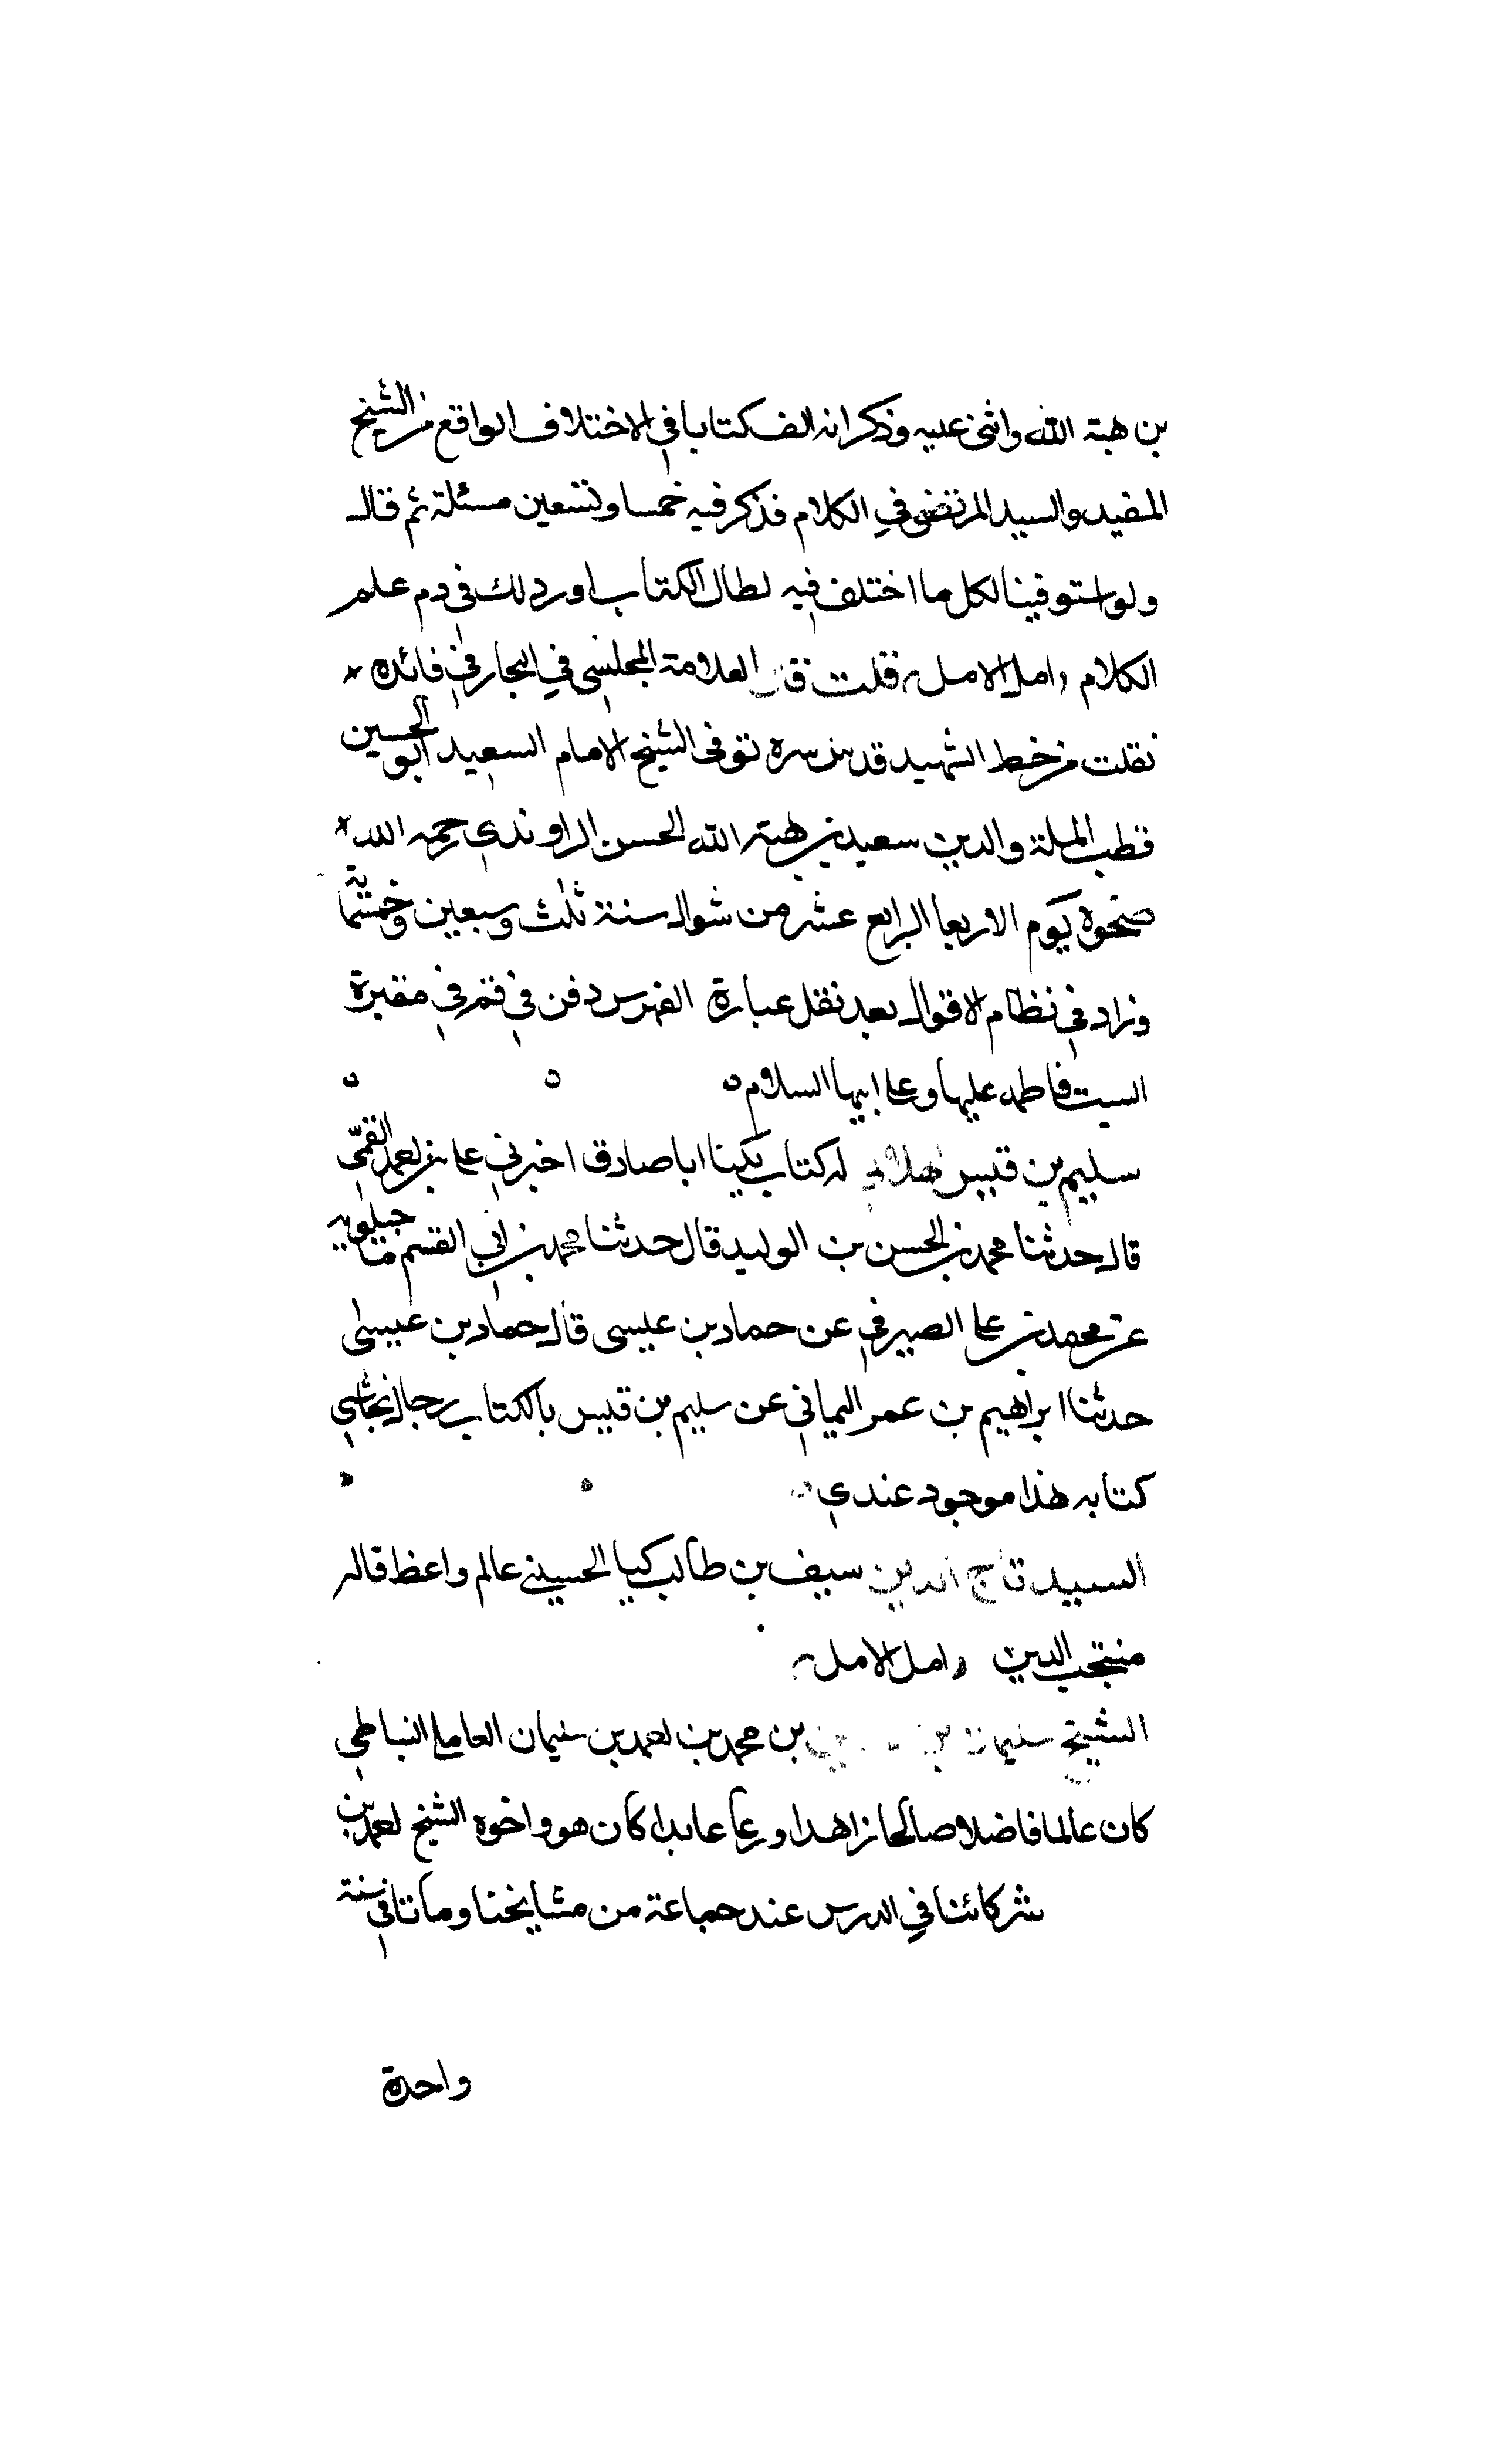 بن هبة الله واثنى عليه وذكر انه الف كتابا في الاختلاف الواقع من الشيخ
المفيد والسيد المرتضى في الكلام فذكر فيه خمسا وتسعين مسئلة ثم قال
ولو استوفينا لكل ما اختلف فيه لطال الكتاب اورد ذلك في دم علم
الكلام امل الامل قلت قال العلامة المجلسي في البحار في فائده
نقلت من خط الشهيد قدس سره توفى الشيخ الامام السعيد ابو الحسين
قطب الملة والدين سعيد بن هبة الله الحسن الراوندي رحمه الله
ضحوة يوم الاربعا الرابع عشر من شوال سنة ثلث وسبعين وخمسمائة
وزاد في نظام الاقوال بعد نقل عبارة الفهرس دفن في قم في مقبرة
الست فاطمه عليها وعلى ابيها السلام
سليم بن قيس الهلالي له كتاب يكنا ابا صادق اخبرني على بن احمد القمّي
قال حدثنا محمد بن الحسن بن الوليد قال حدثنا محمد بن ابي القسم ما جيلويه
عن محمد بن على الصيرفي عن حماد بن عيسى قال حماد بن عيسى
حدثنا ابراهيم بن عمر اليماني عن سليم بن قيس بالكتاب رجال نجاشي
كتابه هذا موجود عندي
السيد تاج الدين سيف بن طالب كيا الحسيني عالم واعظ قاله
منتجب الدين امل الامل
الشيخ سليمان بن بن محمد بن احمد بن سليمان العاملي النباطي
كان عالما فاضلا صالحا زاهدا ورعا عابدا كان هو واخوه الشيخ احمد بن
شركائنا في الدرس عند جماعة من مشايخنا وماتا في سنة
واحدة